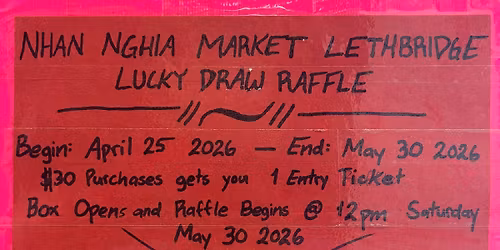 NHAN NGHIA MARKET LETHBRIDGE
LUCKY DRAW RAFFLE
Begin: April 25 2026 — End: May 30 2026
$30 Purchases gets you 1 Entry Ticket
Box Opens and Raffle Begins @ 12pm Saturday
May 30 2026